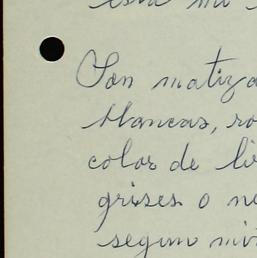 esta mi
Son matiza
blancas, ro
color de li
grises o ne
segun mi